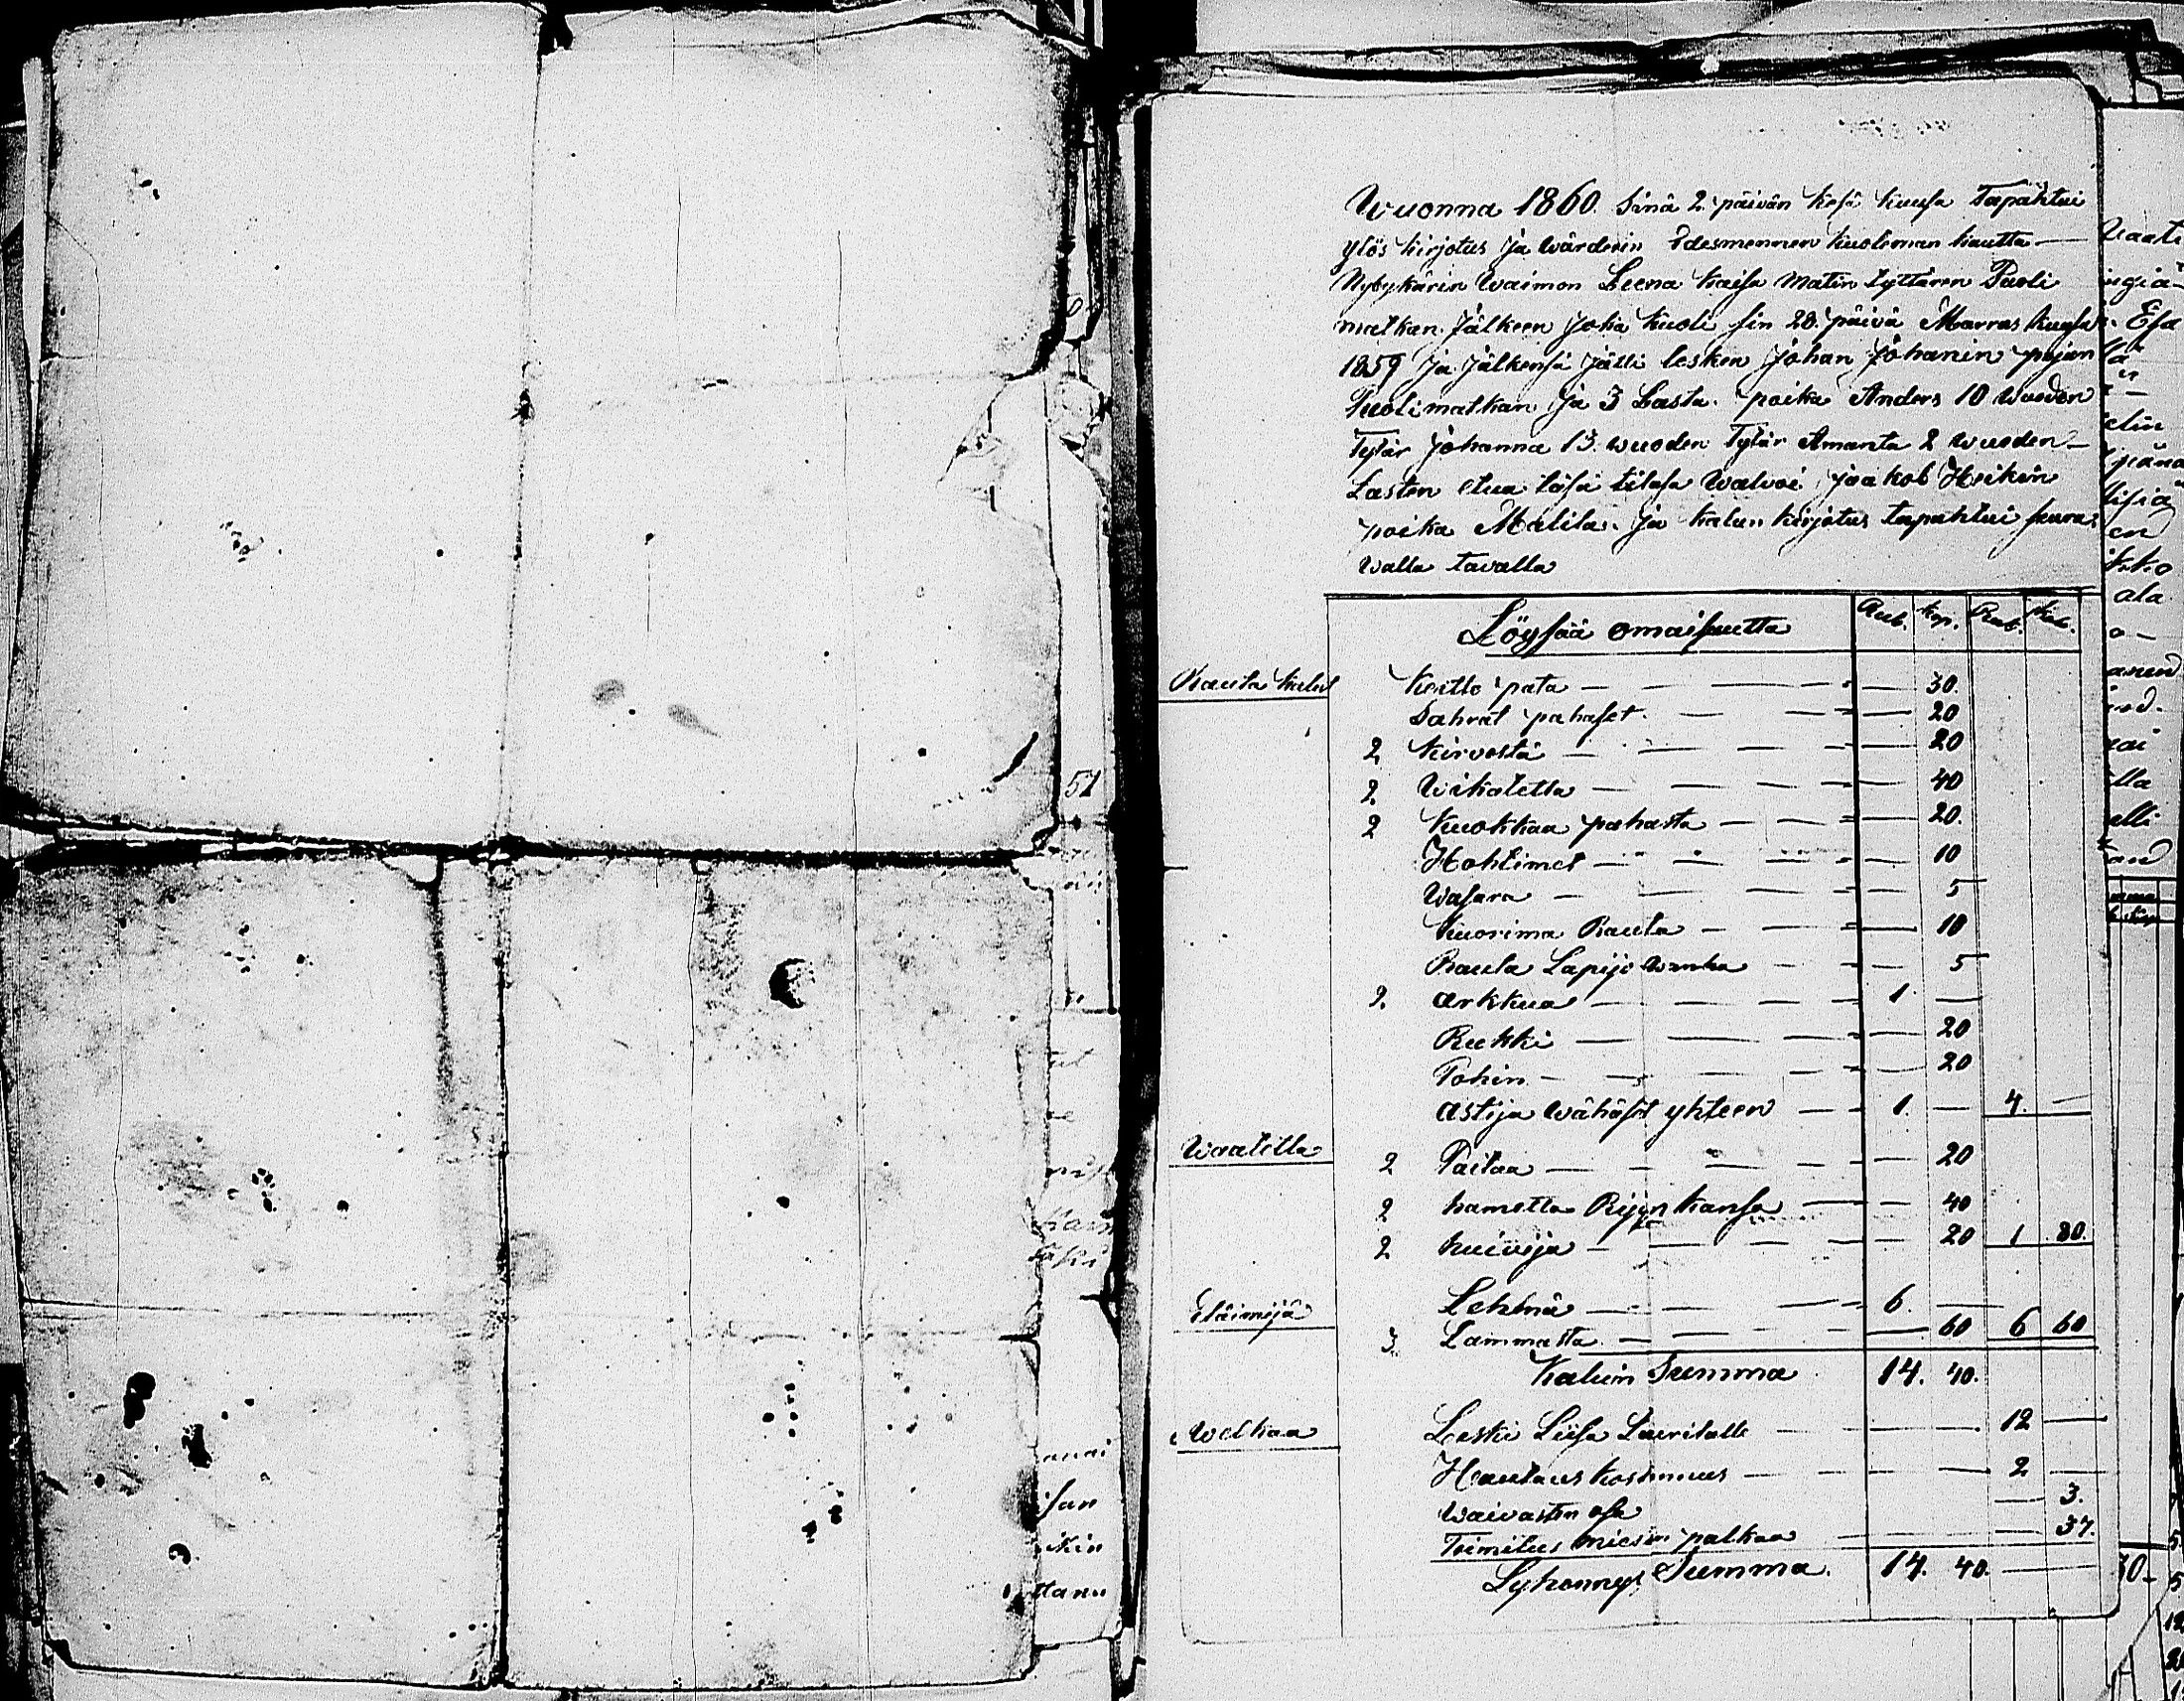 Wuonna 1860. Sinä 2. päivän kesä kuusa Tapahtui
ylös kirjotus ja wärderin Edesmennen kuoleman kautta —
Nybykärin Waimon Leena Kaisa Matin tyttären Puoli
matkan Jälkeen Joka kuoli sin 28. päivä Marras kuusa
1859 Ja Jälkensä Jätti lesken Johan Johanin pojan
Puolimatkan Ja 3 Lasta. poika Anders 10 wuoden
Tytär Johanna 13. wuoden Tytär Amanta 2 wuoden —
Lasten etua täsä tilasa Walvoi jaakob Heikin
poika Malila. Ja kalun kirjotus tapahtui seura
walla tavalla
Löysää omaisuutta Rub. kop. Rub. kop.
Rauta kalut Keitto pata — 30.
Sahrat pahaset. — 20
2 kirvestä — 20
2. Wikatetta — 40
2 kuokkaa pahasta — 20.
Hohtimet — 10
Wasara — 5
Kuorima Rauta — 10
Rauta Lapijo wanha — 5
2. arkkua — 1. —
Rukki — 20
Pohin — 20
astija wähäset yhteen — 1. — 4. —
Waatetta 2 Paitaa — 20
2 hametta Rijyn kansa — 40
2 huivija — 20 1 80.
Eläimijä Lehmä — 6. —
3. Lammasta — 60 6 60
Kaluin Summa 14. 40.
Welkaa Leski Liisa Lauritalle — 12 —
Hautaus kostunnus — 2 —
Waivasten osa — 3.
Toimitus miesin palkaa — 37.
Lyhennys Summa. 14. 40. —
51